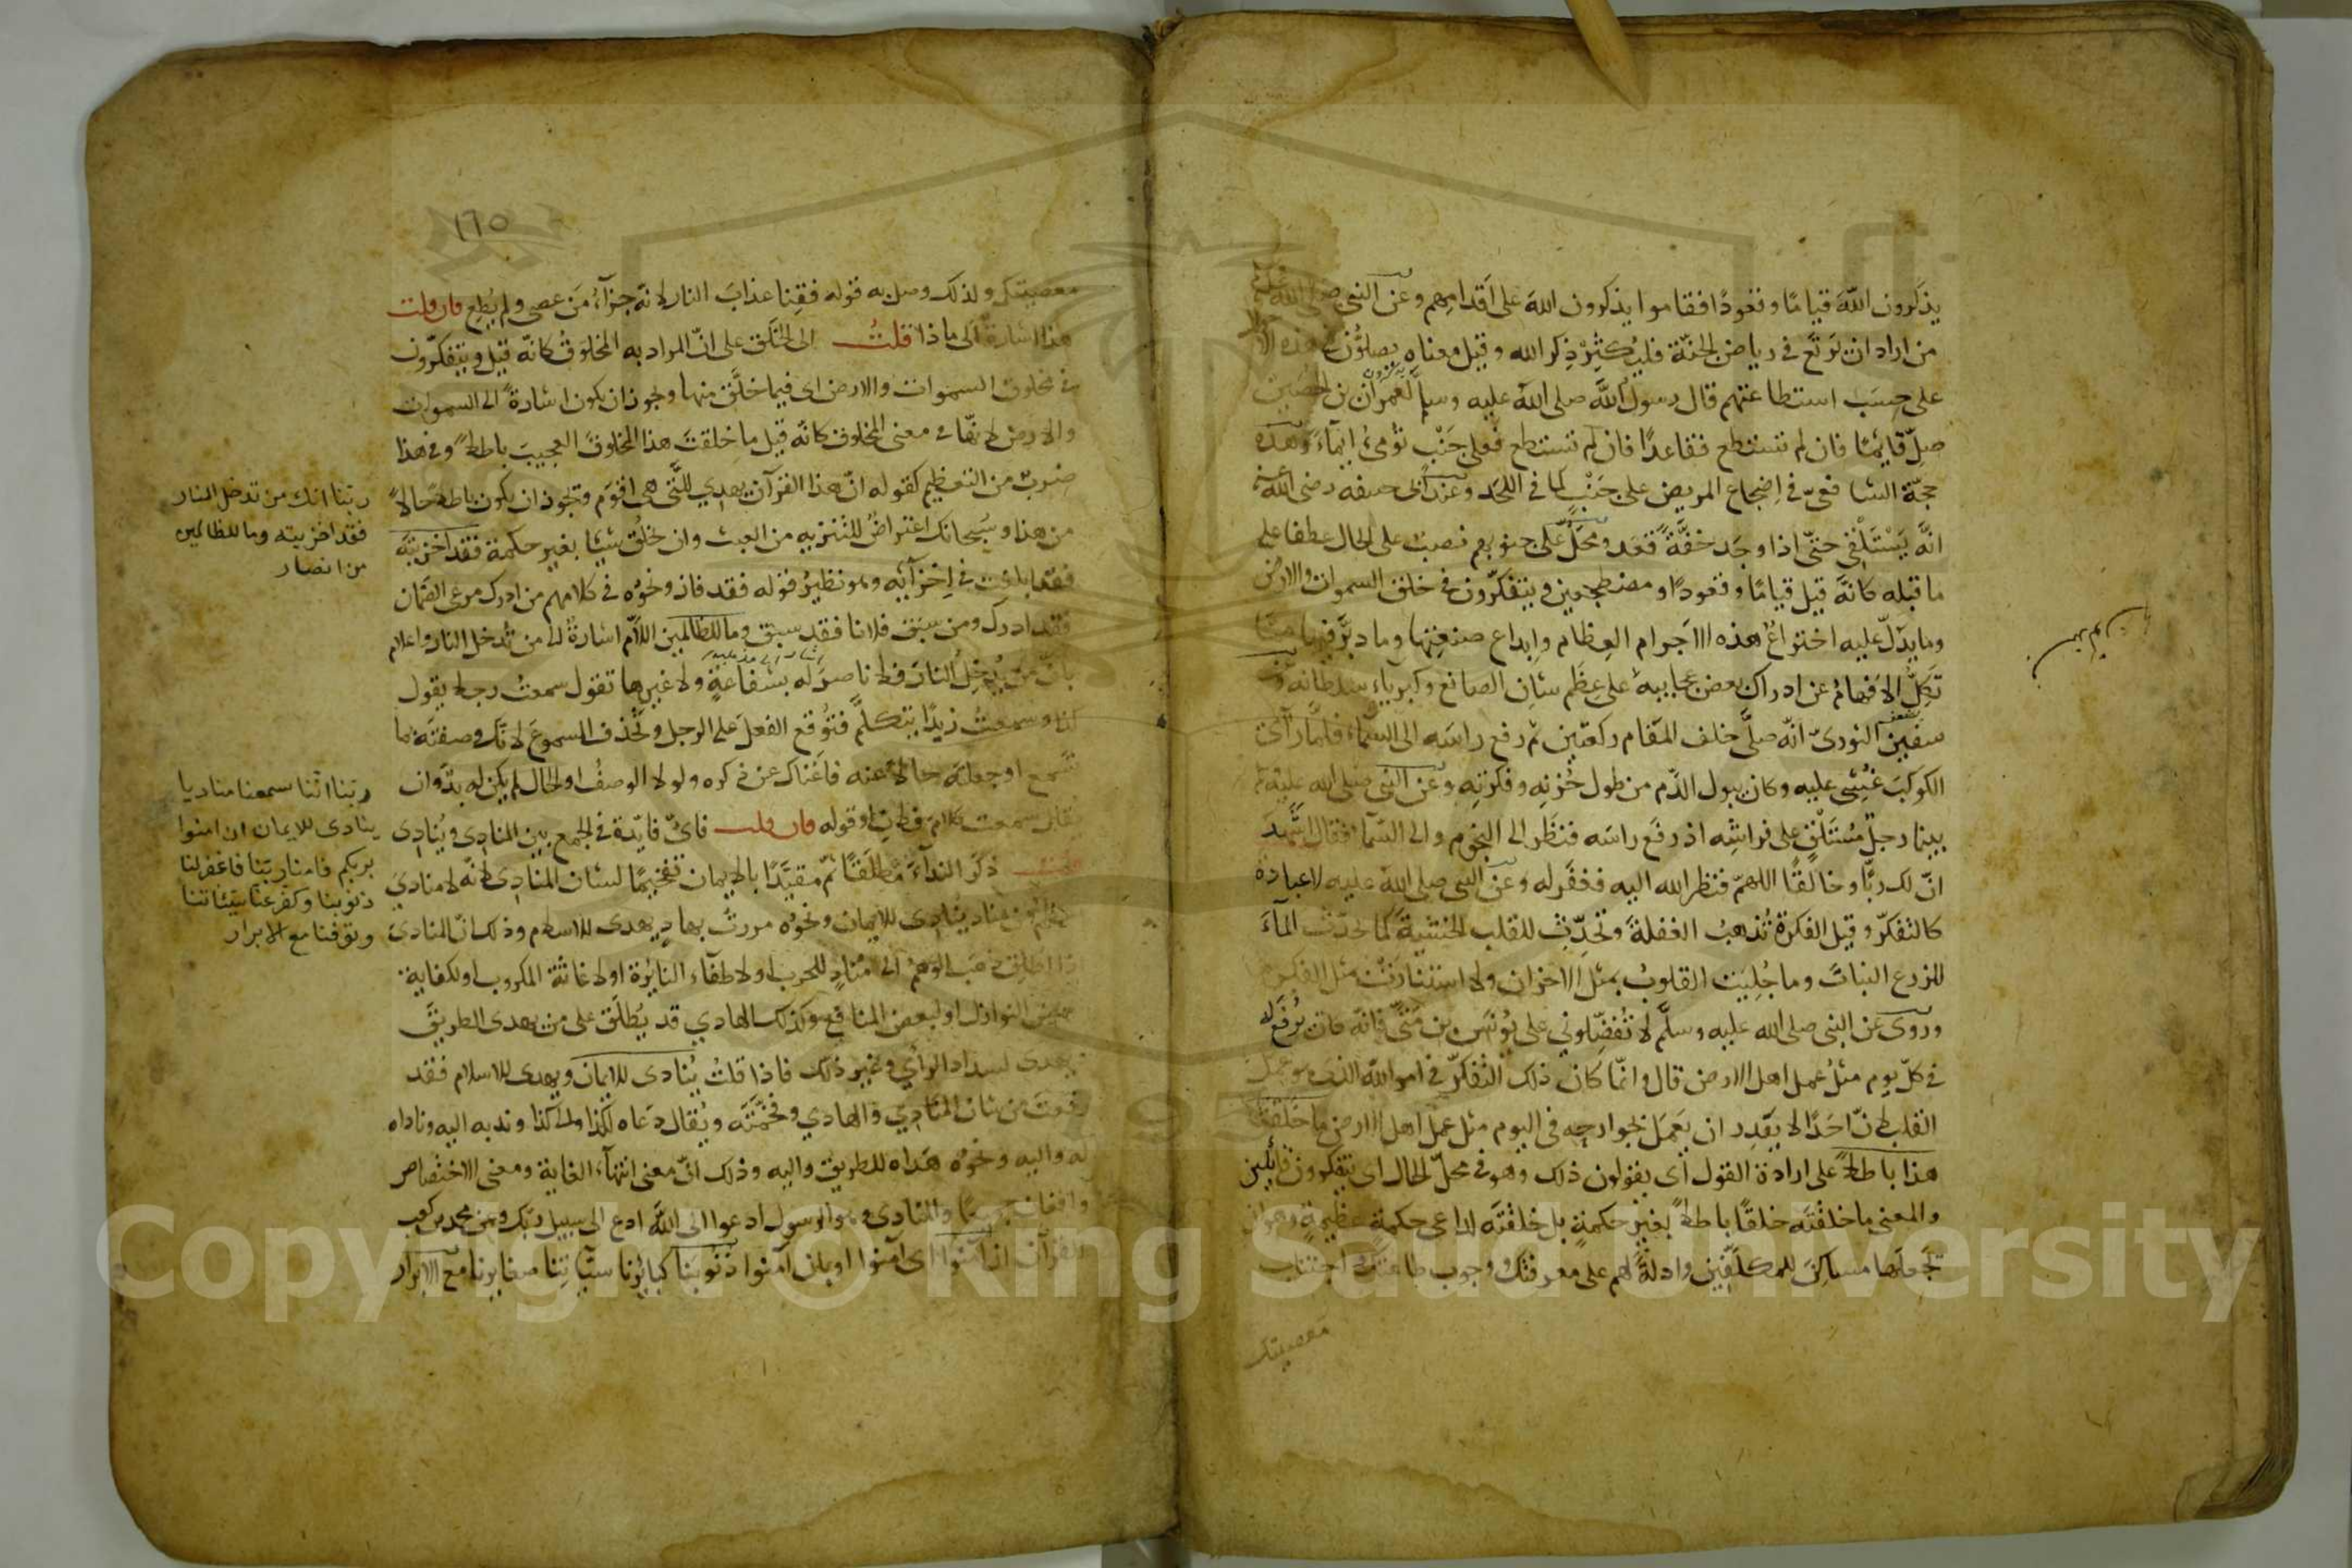 يذكرون الله قياما وقعودا فقاموا يذكرون الله على اقدامهم وعن النبي صلى الله عليه
من اراد ان يرتع في رياض الجنة فليكثر ذكر الله وقيل معناه يصلون في هذه الاحوال
على حسب استطاعتهم قال رسول الله صلى الله عليه وسلم لعمران بن الحصين
صل قايما فان لم تستطع فقاعدا فان لم تستطع فعلى جنب تومئ ايماء وهذه
حجة الشافعي في اضجاع المريض على جنب كما في اللحد وعند ابي حنيفه رضي الله عنه
انه يستلقي حتى اذا وجد خفة قعد ومحل على جنوبهم نصب على الحال عطفا على
ما قبله كانه قيل قياما وقعودا ومضطجعين ويتفكرون في خلق السموات والارض
وما يدل عليه اختراع هذه الاجرام العظام وابداع صنعتها وما دبر فيها مما
تكل الافهام عن ادراك بعض عجايبه على عظم شان الصانع وكبرياء سلطانه وعن
سفين الثوري انه صلى خلف المقام ركعتين ثم رفع راسه الى السماء فلما راى
الكوكب غشي عليه وكان يبول الدم من طول حزنه وفكرته وعن النبي صلى الله عليه
بينما رجل مستلق على فراشه اذ رفع راسه فنظر الى النجوم والى السماء فقال اشهد
ان لك ربا وخالقا اللهم فنظر الله اليه فغفر له وعن النبي صلى الله عليه لا عبادة
كالتفكر وقيل الفكرة تذهب الغفلة وتحدث للقلب الخشية كما يحدث الماء
للزرع النبات وما جليت القلوب بمثل الاحزان ولا استنارت بمثل الفكرة
وروى عن النبي صلى الله عليه وسلم لا تفضلوني على يونس بن متى فانه كان يرفع له
في كل يوم مثل عمل اهل الارض قال وانما كان ذلك التفكر في امر الله الذي هو عمل
القلب لان احدا لا يقدر ان يعمل بجوارحه في اليوم مثل عمل اهل الارض ما خلقت
هذا باطلا على ارادة القول اى يقولون ذلك وهو في محل الحال اى يتفكرون قائلين
والمعنى ما خلقته خلقا باطلا بغير حكمة بل خلقته لداعى حكمة عظيمة وهو ان
تجعلها مساكن للمكلفين وادلة لهم على معرفتك ووجوب طاعتك واجتناب
معصيتك
١٦٥
معصيتك ولذلك وصل به قوله فقنا عذاب النار لانه جزاء من عصى ولم يطع فان قلت
هذا اشارة الى ماذا قلت الى الخلق على ان المراد به المخلوق كانه قيل ويتفكرون
في مخلوق السموات والارض اى فيما خلق منها ويجوز ان يكون اشارة الى السموات
والارض لانها في معنى المخلوق كانه قيل ما خلقت هذا المخلوق العجيب باطلا وفي هذا
ضرب من التعظيم كقوله ان هذا القرآن يهدي للتي هى اقوم ويجوز ان يكون باطلا حالا
من هذا وسبحانك اعتراض للتنزيه من العبث وان يخلق شيئا بغير حكمة فقد اخزيته
فقد ابلغت في اخزآئه وهو نظير قوله فقد فاز ونحوه في كلامهم من ادرك مرعى الصمان
فقد ادرك ومن سبق فلانا فقد سبق وما للظالمين اللام اشارة الى من تدخل النار واعلام
بان من يدخل النار فلا ناصر له بشفاعة ولا غيرها تقول سمعت رجلا يقول
كذا وسمعت زيدا يتكلم فتوقع الفعل على الرجل وتحذف المسموع لانك وصفته بما
تسمع او جعلته حالا عنه فاغناك عن ذكره ولولا الوصف او الحال لم يكن له بد وان
يقال سمعت كلام فلان او قوله فان قلت فاى فايدة في الجمع بين المنادى وينادى
قلت ذكر النداء مطلقا ثم مقيدا بالايمان تفخيما لشان المنادى لانه لا منادى
اعظم من مناد ينادى للايمان ونحوه مررت بهاد يهدى للاسلام وذلك ان المنادى
اذا اطلق ذهب الوهم الى مناد للحرب او لاطفاء النايرة او لاغاثة المكروب او لكفاية
بعض النوازل او لبعض المنافع وكذلك الهادي قد يطلق على من يهدى الطريق
ويهدى لسداد الراي وغير ذلك فاذا قلت ينادى للايمان ويهدى للاسلام فقد
رفعت من شان المنادي والهادي وفخمته ويقال دعاه لكذا والى كذا وندبه اليه وناداه
له واليه ونحوه هداه للطريق واليه وذلك ان معنى انتهاء الغاية ومعنى الاختصاص
واقعان جميعا والمنادى هو الرسول ادعوا الى الله ادع الى سبيل ربك وعن محمد بن كعب
القرآن ان آمنوا اى امنوا او بان آمنوا ذنوبنا كبايرنا سيأتنا صغايرنا مع الابرار
ربنا انك من تدخل النار
فقد اخزيته وما للظالمين
من انصار
ربنا اننا سمعنا مناديا
ينادى للايمان ان امنوا
بربكم فامنا ربنا فاغفر لنا
ذنوبنا وكفر عنا سيئاتنا
وتوفنا مع الابرار
Copyright © King Saud University